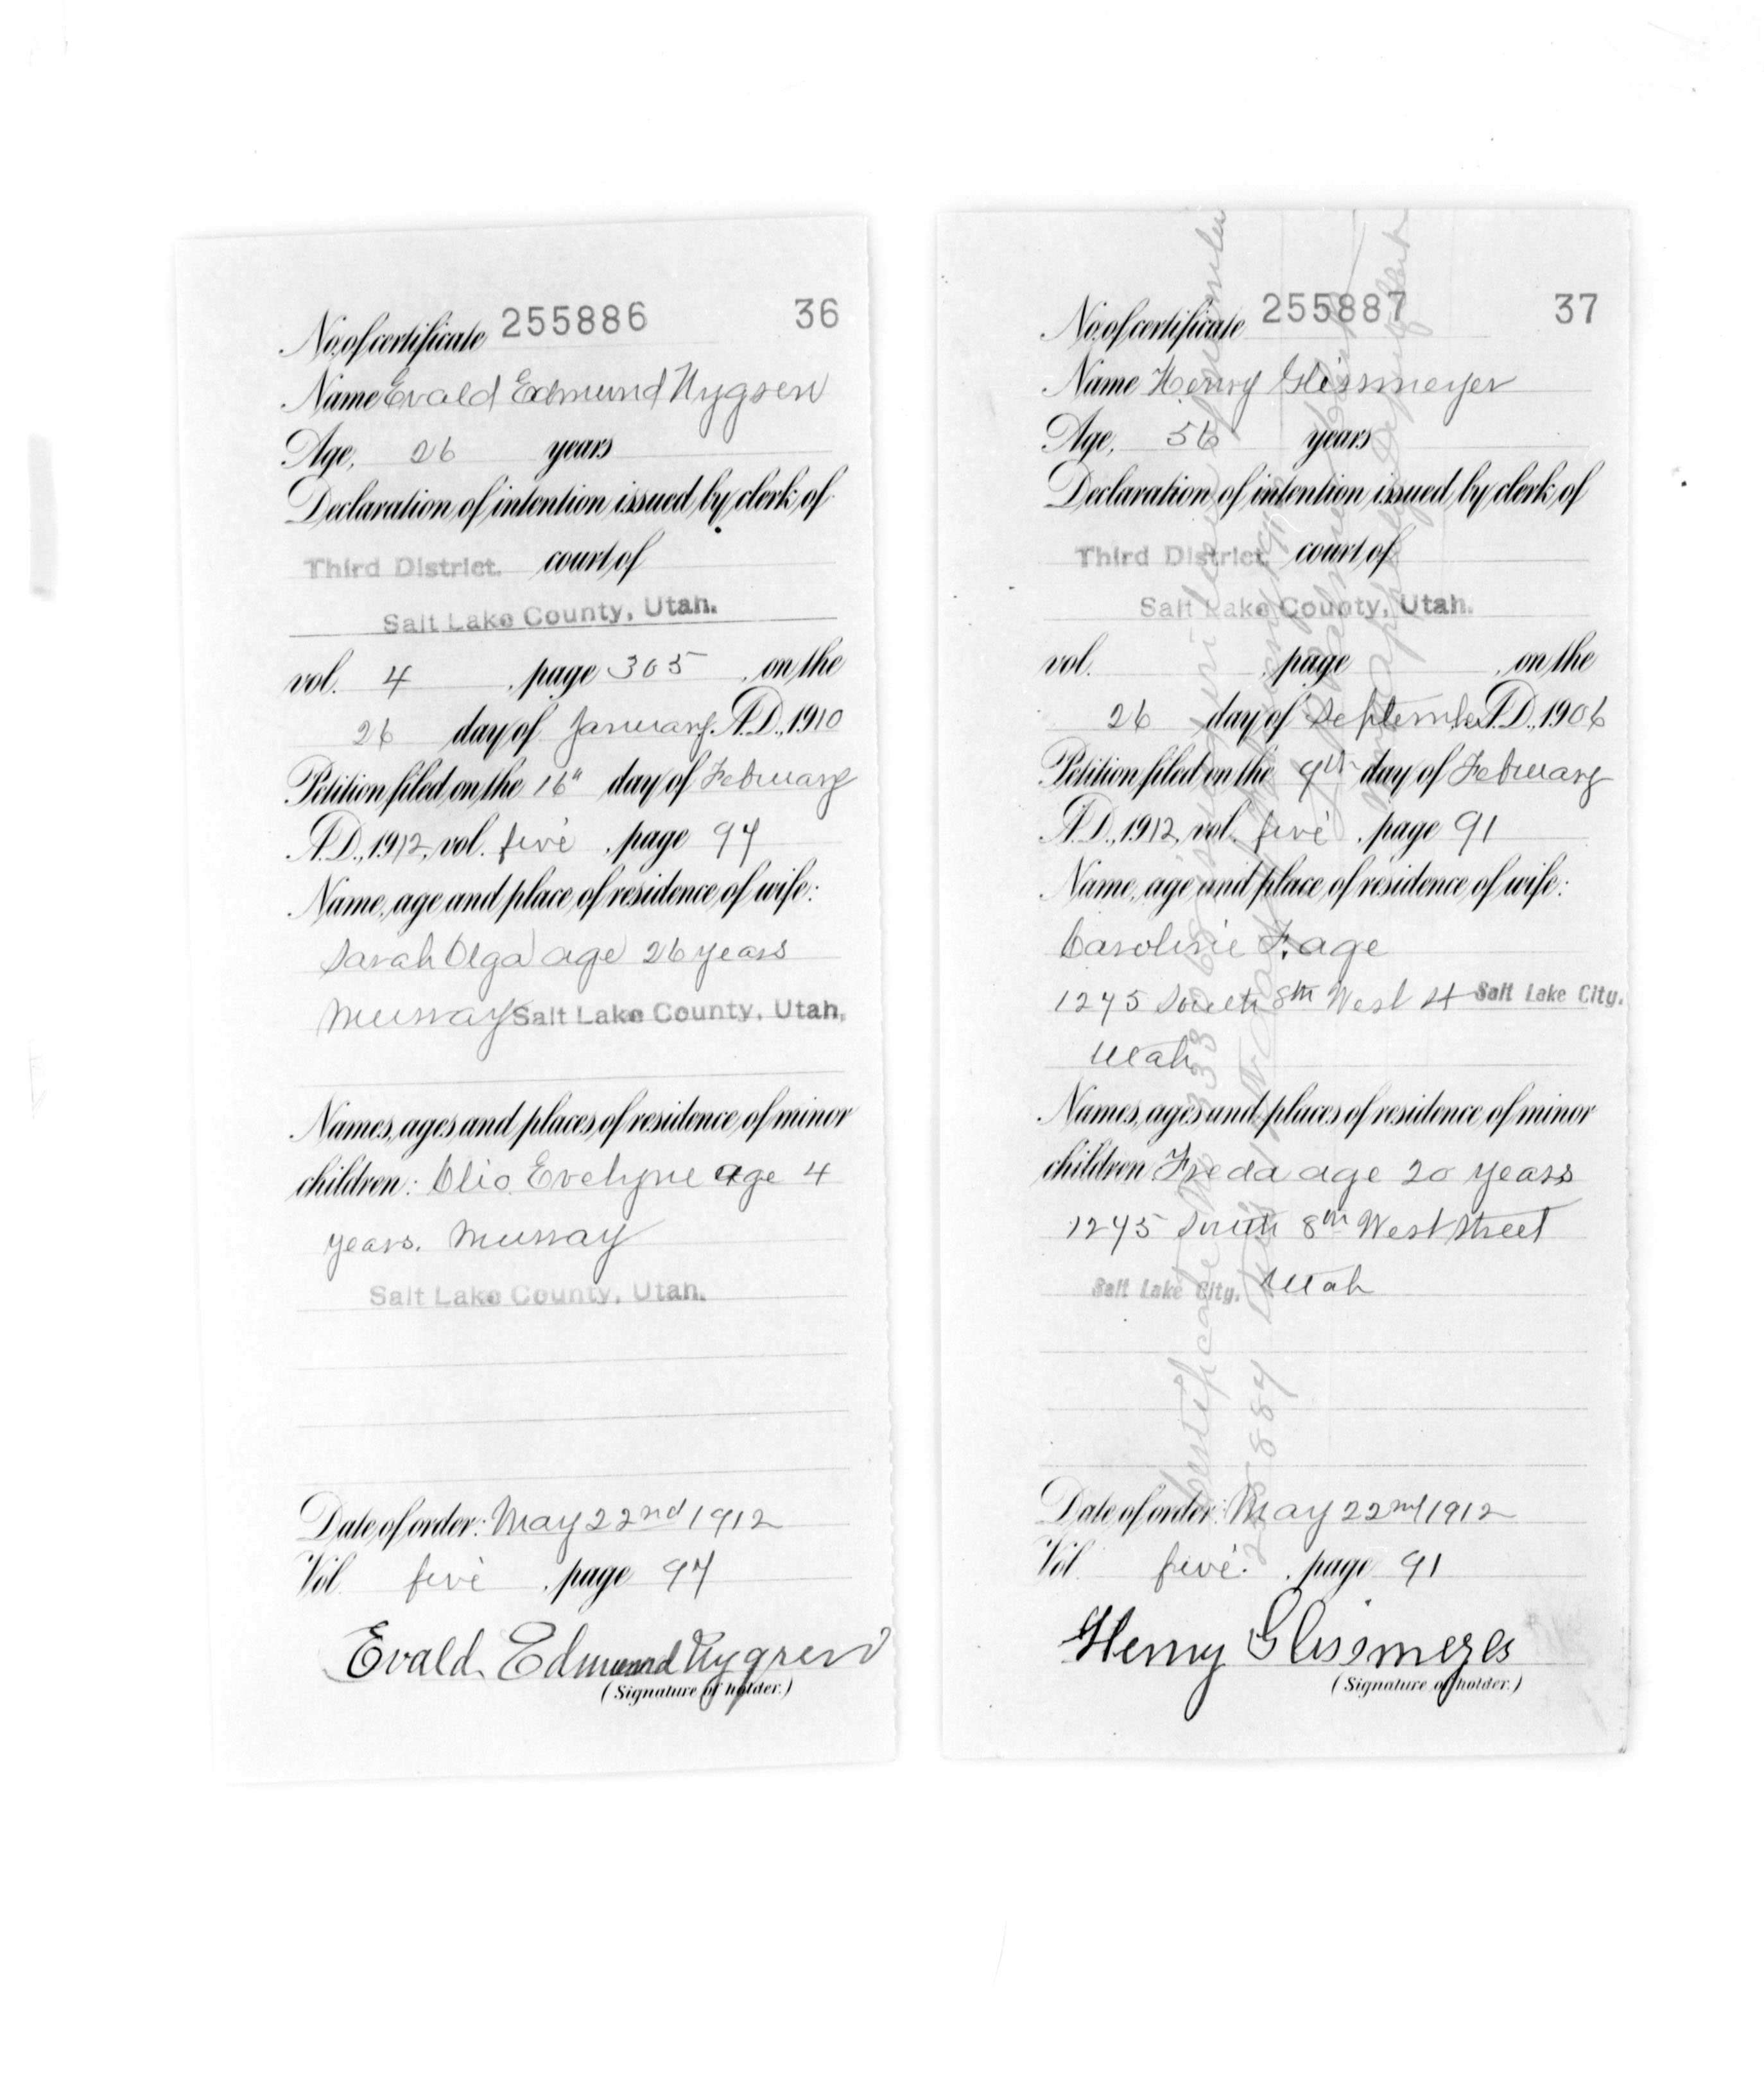 No. of certificate 255886 36
Name Evald Edmund Nygren
Age, 26 years
Declaration of intention issued by clerk of
Third District. court of
Salt Lake County, Utah.
vol. 4, page 305, on the
26 day of January. A.D., 1910
Petition filed on the 16" day of February
A.D., 1912, vol. five, page 97
Name, age and place of residence of wife:
Sarah Olga age 26 years
Murray Salt Lake County, Utah.
Names, ages and places of residence of minor
children: Clio Evelyne age 4
years. Murray
Salt Lake County, Utah.
Date of order: May 22nd 1912
Vol. five, page 97
Evald Edmund Nygren
(Signature of holder.)
No. of certificate 255887 37
Name Henry Glissmeyer
Age, 56 years
Declaration of intention issued by clerk of
Third District. court of
Salt Lake County, Utah.
vol. , page , on the
26 day of September A.D., 1906
Petition filed on the 9th day of February
A.D., 1912, vol. five, page 91
Name, age and place of residence of wife:
Caroline F. age
1275 South 8th West St Salt Lake City.
Utah
Names, ages and places of residence of minor
children Freda age 20 years
1275 South 8th West Street
Salt Lake City. Utah
Date of order: May 22nd 1912
Vol. five. , page 91
Henry Glissmeyer
(Signature of holder.)